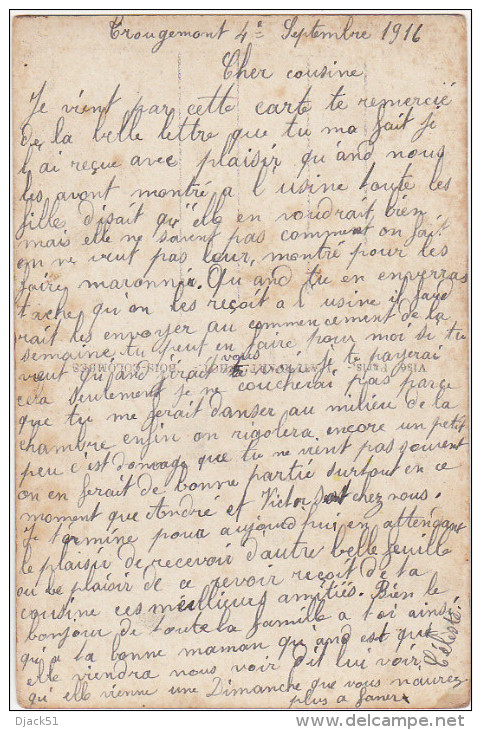 Trougemont 4e Septembre 1916
Cher cousine
Je vient par cette carte te remercié
de la belle lettre que tu ma fait je
l ai reçue avec plaisir qu'and nous
les avont montré a l'usine toute les
fille disait qu'elle en voudrait bien
mais elle ne savent pas comment on fait
on ne veut pas leur, montré pour les
faire maronnér. Qu and tu en enverras
tache qu'on les reçoit a l'usine il faud
rait les envoyer au commencement de la
semaine tu peut en faire pour moi si tu
veut qu'and j'irait vous je te payerai
cela seulement je ne coucherai pas parce
que tu me ferait danser au milieu de la
chambre enfin on rigolera encore un petit
peu c'est domage que tu ne vient pas souvent
on en ferait de bonne partie surtout en ce
moment que André et Victor sont chez nous.
Je termine pour aujourd'hui en attendant
le plaisir de recevoir d'autre belle feuille
ou le plaisir de ce revoir reçoit de ta
cousine ces meilleurs amitiés. Bien le
bonjour de toute la famille a toi ainsi
qu'a ta bonne maman qu'and est que
elle viendra nous voir dit lui voir
qu'elle vienne une Dimanche que vous naurez
plus a faner
Céleste.
VISÉ PARIS
BOIS-COLOMBES
Djack51
delcampe.net